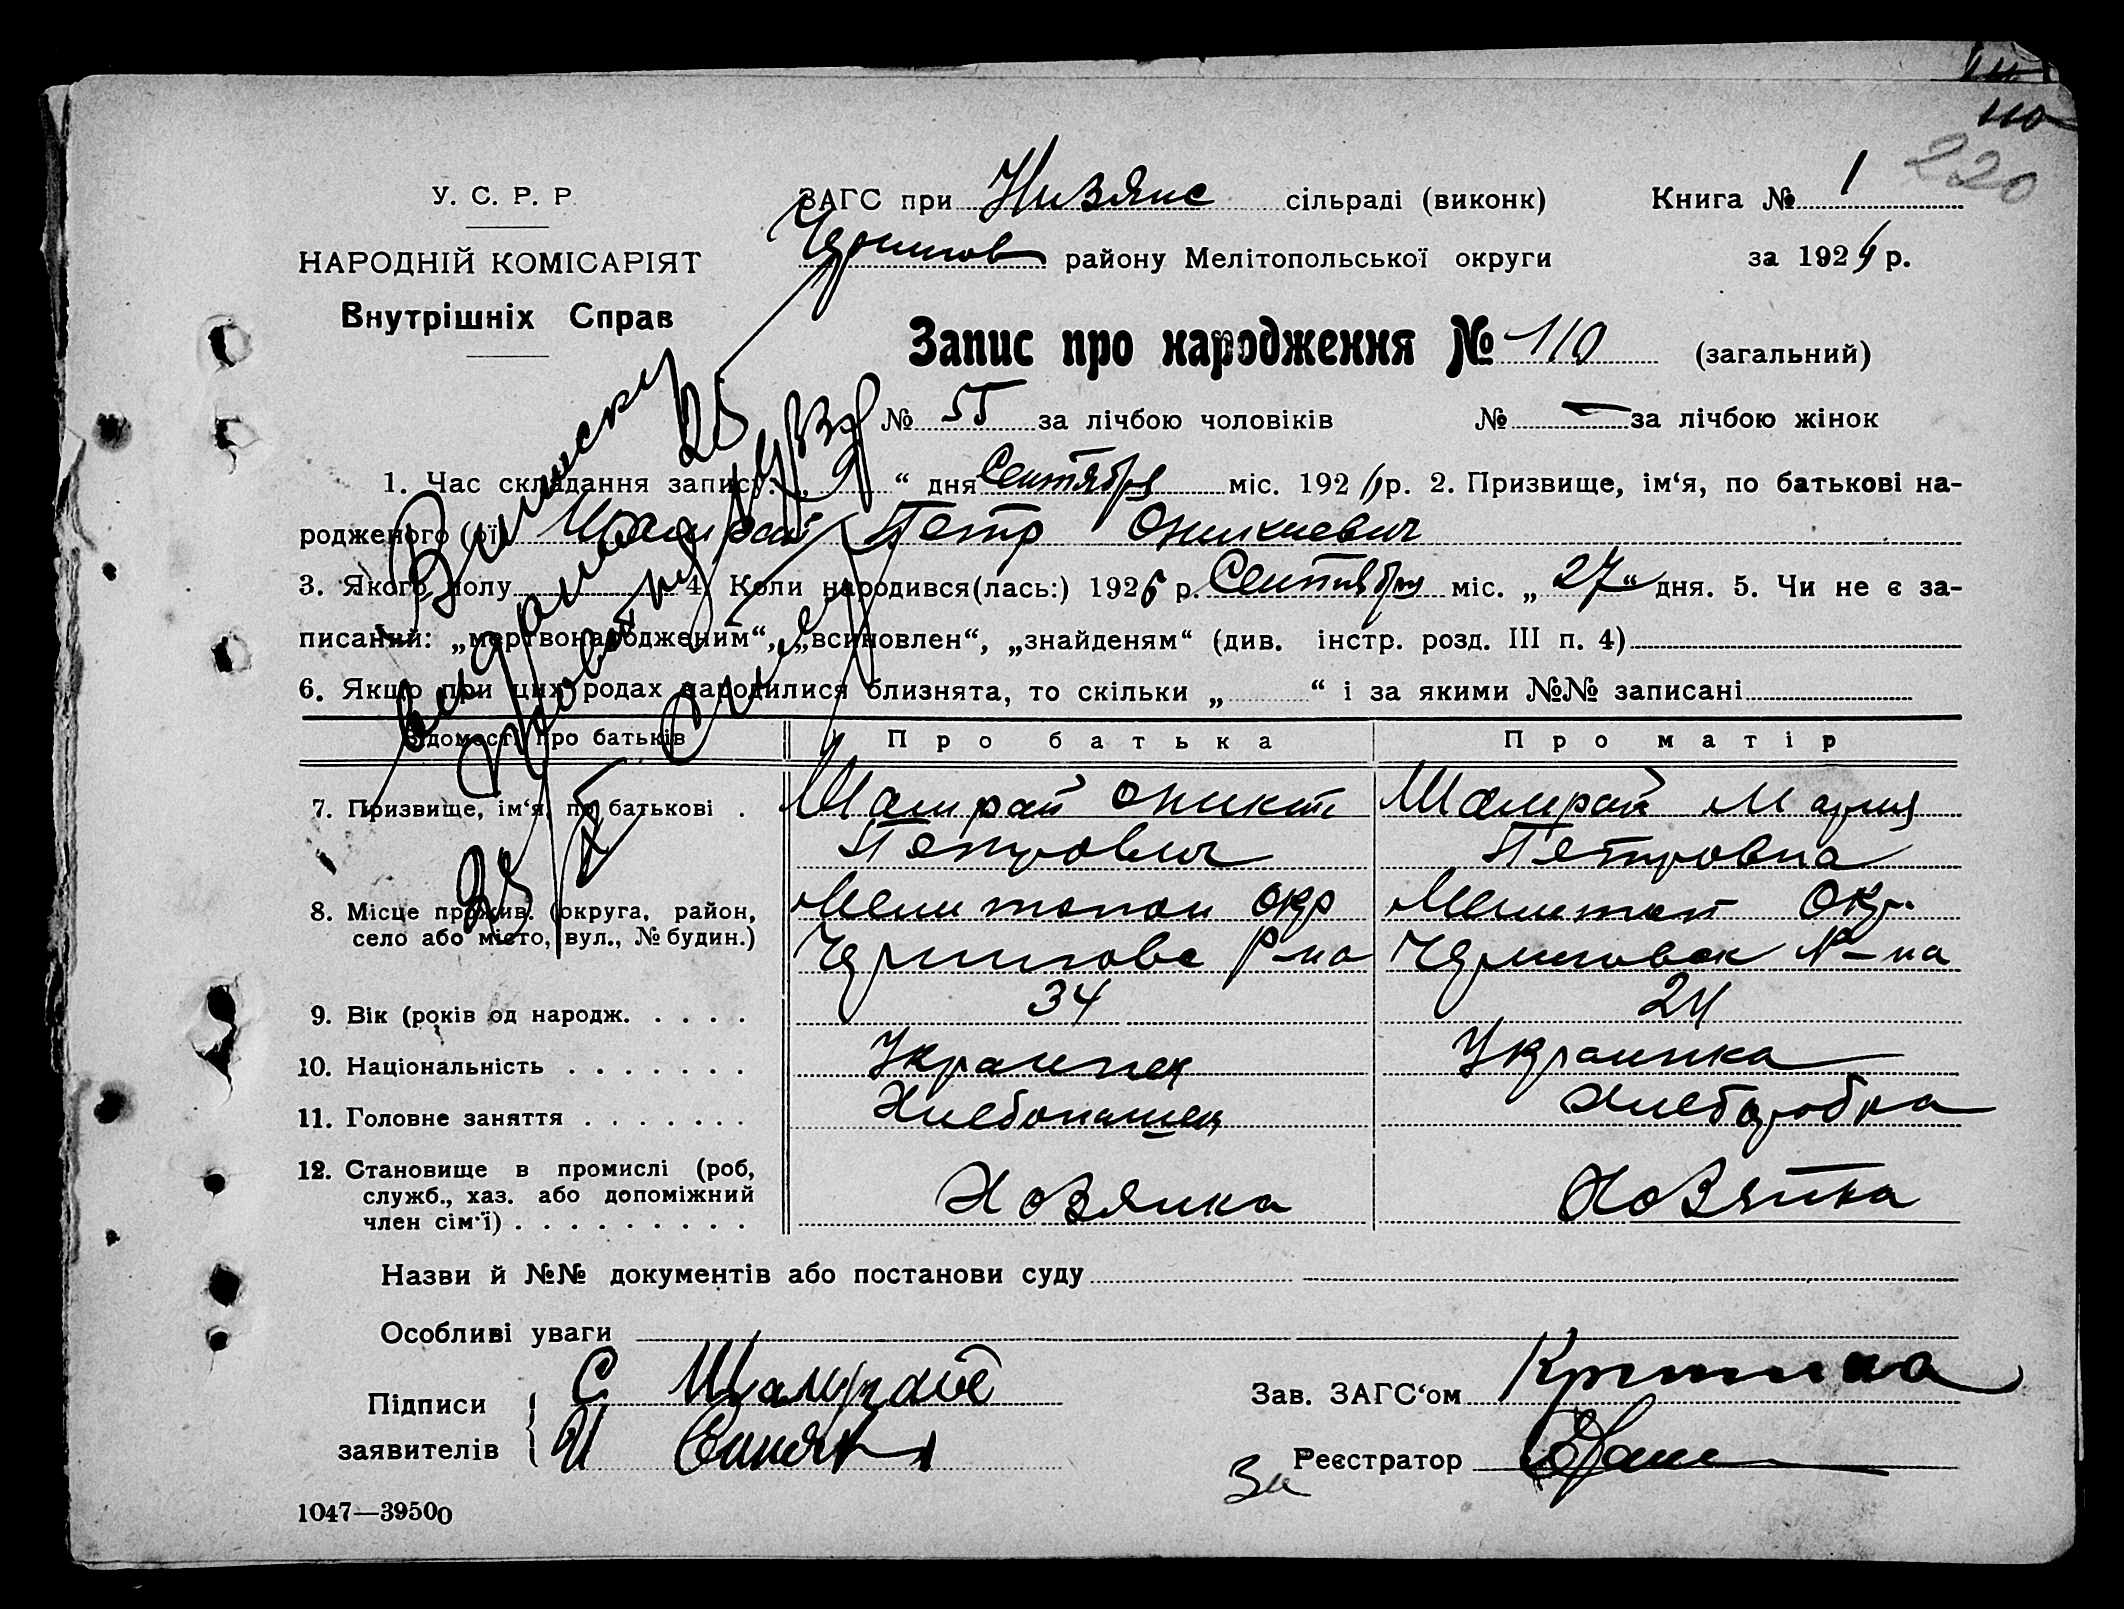 110
220
У. С. Р. Р.
НАРОДНІЙ КОМІСАРІЯТ
Внутрішніх Справ
ЗАГС при Низянс сільраді (виконк)
Книга № 1
Чернигов району Мелітопольської округи
за 192 р.
Запис про народження № 110 (загальний)
№ 55 за лічбою чоловіків № — за лічбою жінок
1. Час складання запису: „ “ дня Сентября міс. 192 р. 2. Призвище, ім‘я, по батькові на-
родженого (ої) Шамрай Петр Оникиевич
3. Якого полу 4. Коли народився(лась:) 192 р. Сентября міс. „27“ дня. 5. Чи не є за-
писаний: „мертвонародженим“, „всиновлен“, „знайденям“ (див. інстр. розд. III п. 4)
6. Якщо при цих родах народилися близнята, то скільки „ “ і за якими №№ записані
Выписку
выдано
Відомості про батьків Про батька Про матір
7. Призвище, ім‘я, по батькові . Шамрай Оники Шамрай Мария
Петрович Петровна
8. Місце прожив. (округа, район, Мелитопол окр Мелитоп Окр.
село або місто, вул., № будин.) Чернигов Р-на Черниговск Р-на
9. Вік (років од народж. . . . . 34 24
10. Національність . . . . . . . Украинец Украинка
11. Головне заняття . . . . . . . Хлебопашец Хлеборобка
12. Становище в промислі (роб,
служб., хаз. або допоміжний Хозяика Хозяйка
член сім‘ї) . . . . . . . . .
Назви й №№ документів або постанови суду
Особливі уваги
Підписи С Шамрай Зав. ЗАГС‘ом
заявителів И За Реєстратор
1047—39500